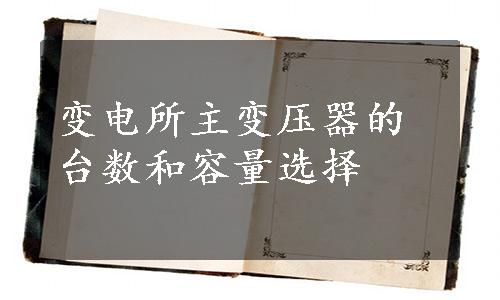 变电所主变压器的
台数和容量选择